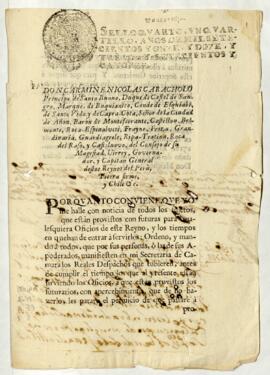 SELLO QVARTO, VN QVAR-
TILLO, AÑOS DE MIL SETE-
CIENTOS Y ONZE, Y DOZE, Y
CIENTOS Y
DON CARMIN NICOLAS CARACHOLO
Principe de Santo Buono, Duque de Castel de San-
gro, Marques de Buquianico, Conde de
de Santo Vido, y de Capra-Cota, Señor de la Ciudad
de Añon, Baron de Monteferrante,
monte, Roca-Espinalveti, Frayne,
dinaria, Guardiagrele,
del Raso, y Castilnovo, del Consejo de su
Magestad, Virrey, Governa-
dor, y Capitan General
destos Reynos del Perù,
Tierra firme,
y Chile &c.
POR QVANTO CONVIENE, QVE YO
me halle con noticia de todos los
que están provistos con futuras para
lesquiera Oficios de este Reyno, y los tiempos
en que han de entrar à servirlos; Ordeno, y man-
do à todos, que por sus personas, ò las de sus A-
poderados, manifiesten en mi Secretaria de Ca-
mara los Reales Despachos que tubieren, antes
de cumplir el tiempo los que al presente están
sirviendo los Oficios, à que están provistos los
futurarios, con apercebimiento, que de no ha-
zerlo, les parará el perjuicio de que passaré à
pro